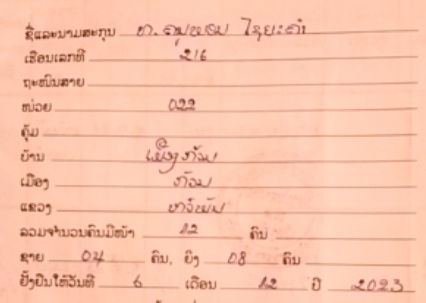 ຊື່ແລະນາມສະກຸນ ທ. ຄູນພອນ ໄຊຍະຄຳ
ເຮືອນເລກທີ 216
ຖະໜົນສາຍ
ໜ່ວຍ 022
ຄຸ້ມ
ບ້ານ ເມືອງກ້ວນ
ເມືອງ ກ້ວນ
ແຂວງ ຫົວພັນ
ລວມຈຳນວນຄົນມີໜ້າ 12 ຄົນ
ຊາຍ 04 ຄົນ, ຍິງ 08 ຄົນ
ຢັ້ງຢືນໃຫ້ວັນທີ 6 ເດືອນ 12 ປີ 2023